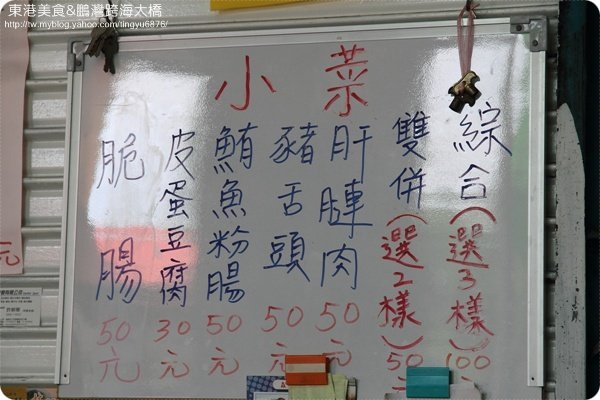 東港美食&鵬灣跨海大橋
http://tw.myblog.yahoo.com/tingyu6876/
小菜
綜合(選3樣)100元
雙併(選2樣)50元
肝腱肉50元
豬舌頭50元
鮪魚粉腸50元
皮蛋豆腐30元
脆腸50元
元